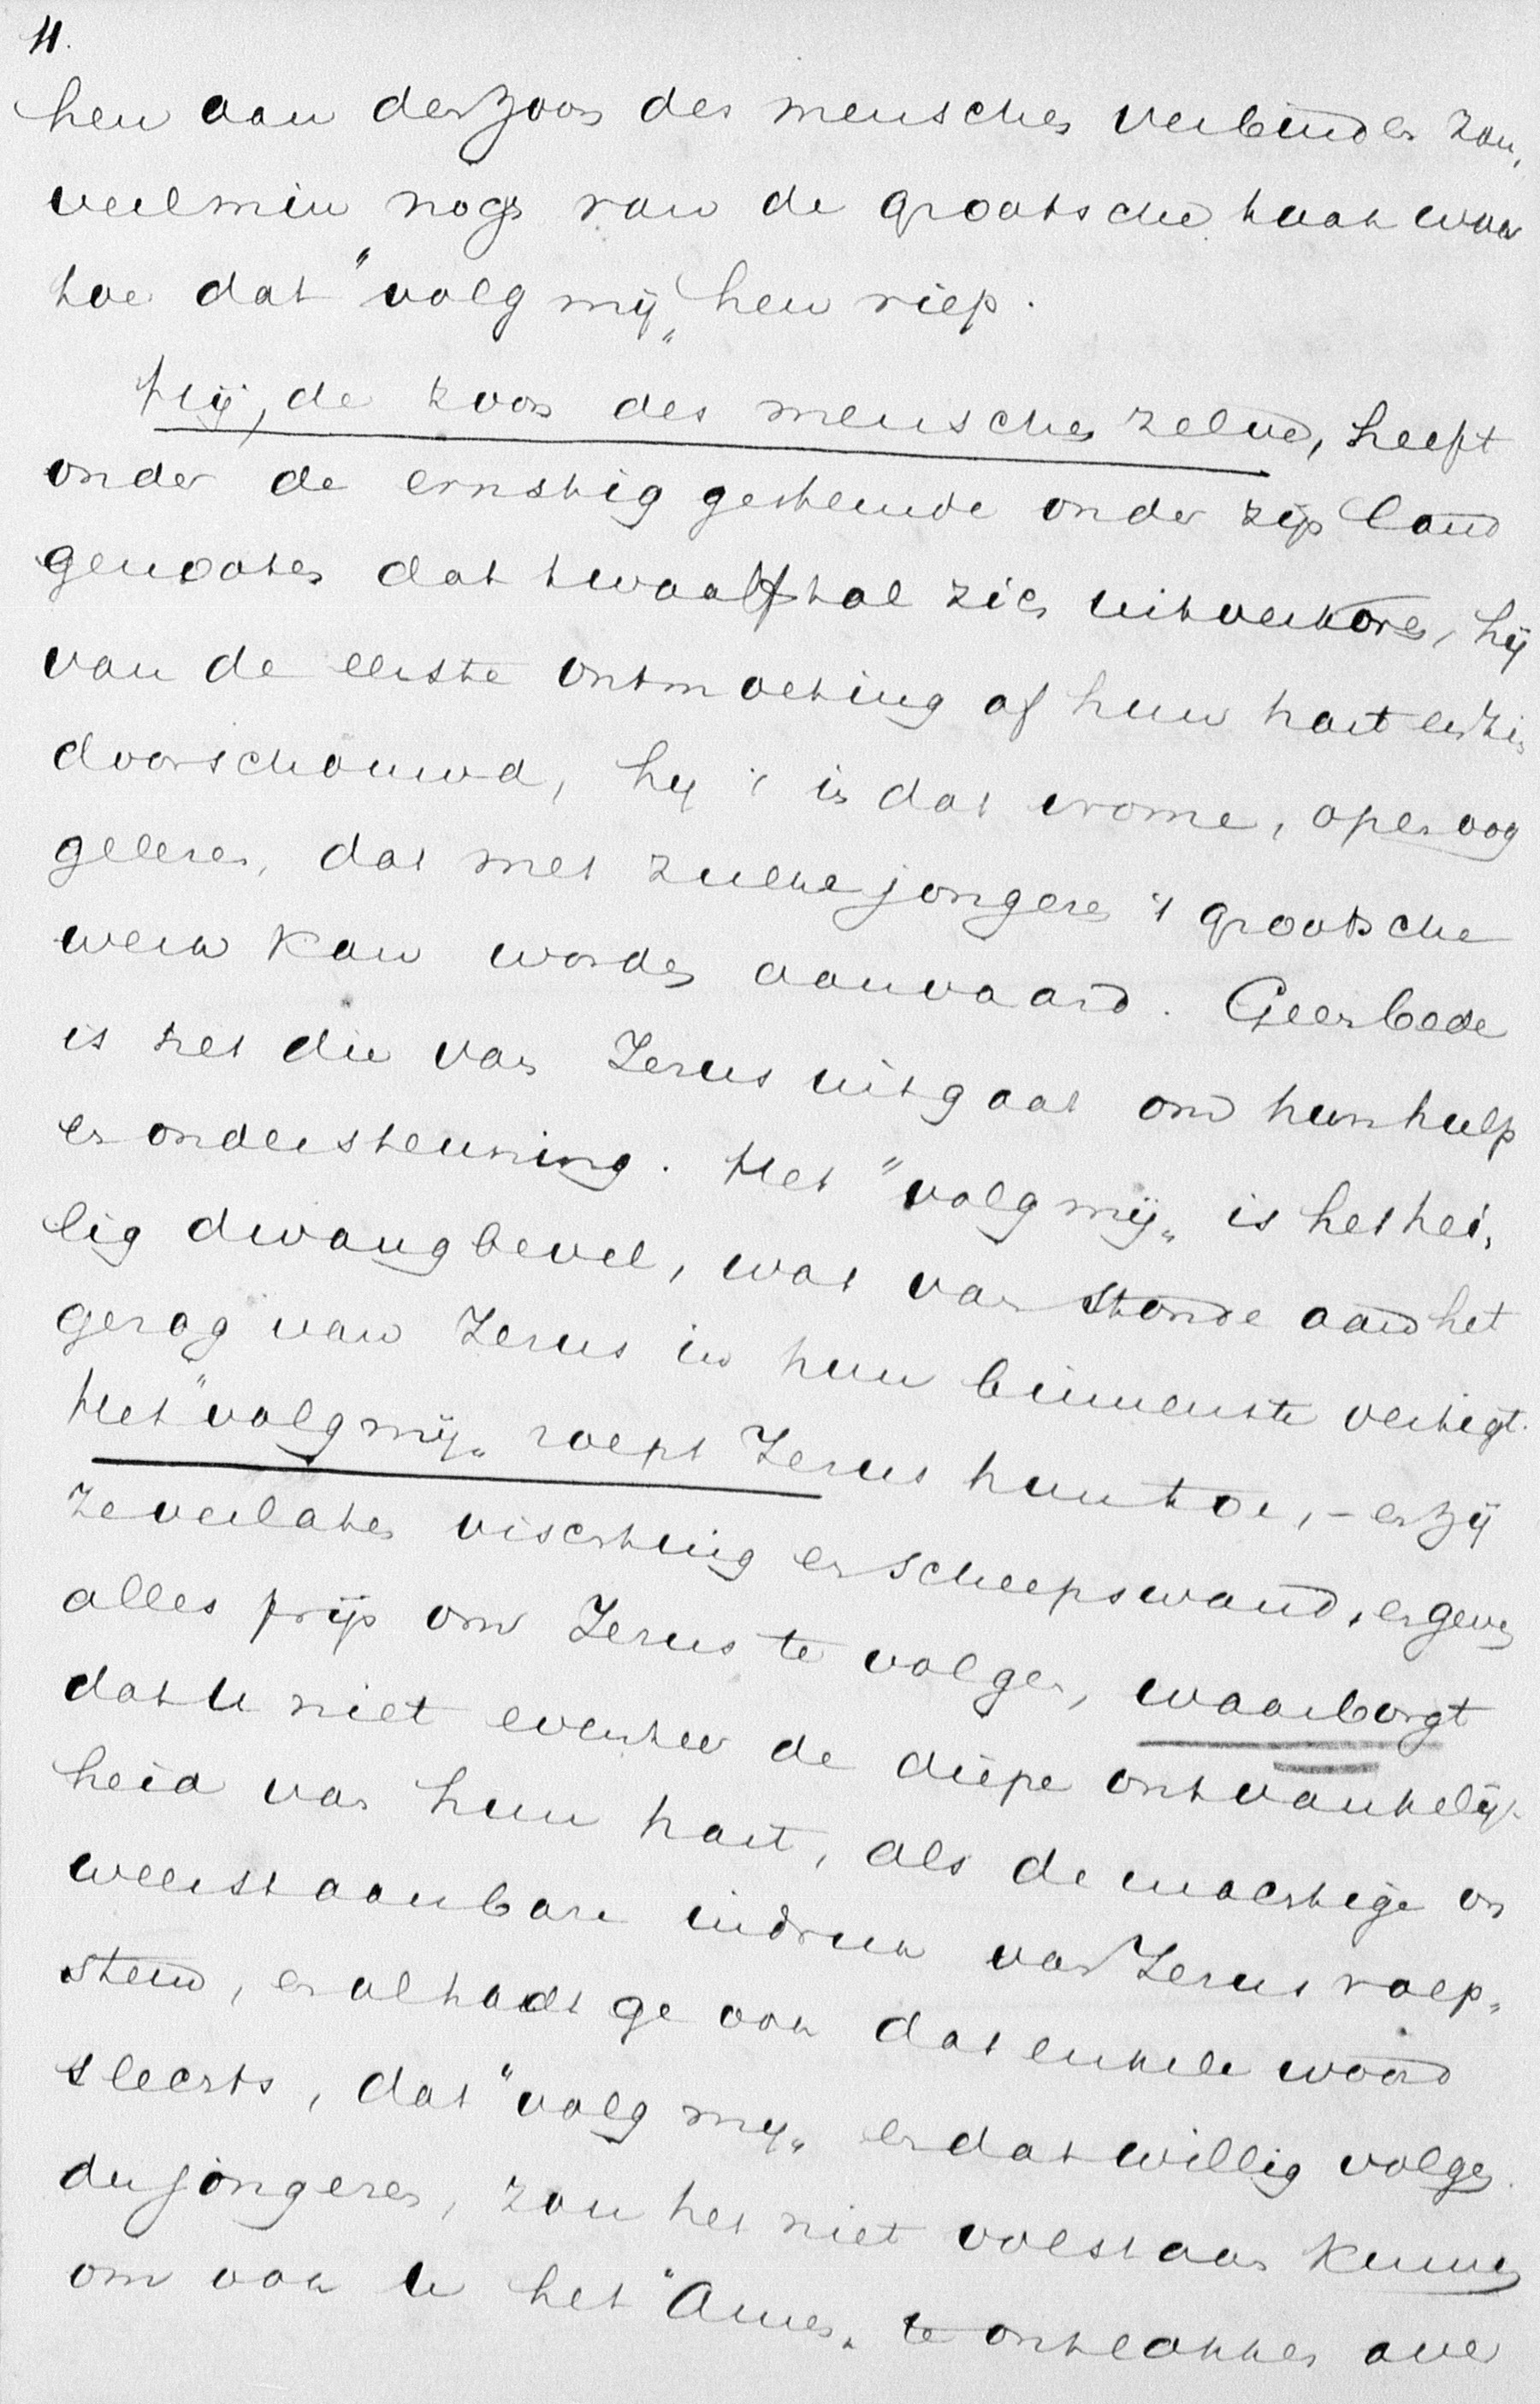 11.
hen aan den Zoon des menschen verbinden zou,
veelmin nog van de grootsche taak waar
toe dat "volg mij" hen riep.
Hij, de Zoon des menschen zelve, heeft
onder de ernstig gestemde onder zijn land
genooten dat twaalftal zich uitverkoren, hij
van de eerste ontmoeting af hun hart en zin
doorschouwd, hij 't in dat vrome, open oog
gelezen, dat met zulke jongeren 't grootsche
werk kan worden aanvaard. Geen bede
is het die van Jezus uitgaat om hun hulp
en ondersteuning. Het "volg mij" is het hei„
lig dwangbevel, wat van stonde aan het
gezag van Jezus in hun binnenste vestigt.
Het "volg mij" roept Jezus hun toe, – en zij
ze verlaten vischtuig en scheepswand, en geven
alles prijs om Jezus te volgen, waarborgt
dat U niet evenzeer de diepe ontvankelijk
heid van hun hart, als de machtige on
weerstaanbare indruk van Jezus roep„
stem, en al hadt ge ook dat enkele woord
slechts, dat "volg mij" en dat willig volgen
der jongeren, zou het niet volstaan kunnen
om ook U het "Amen" te ontlokken over